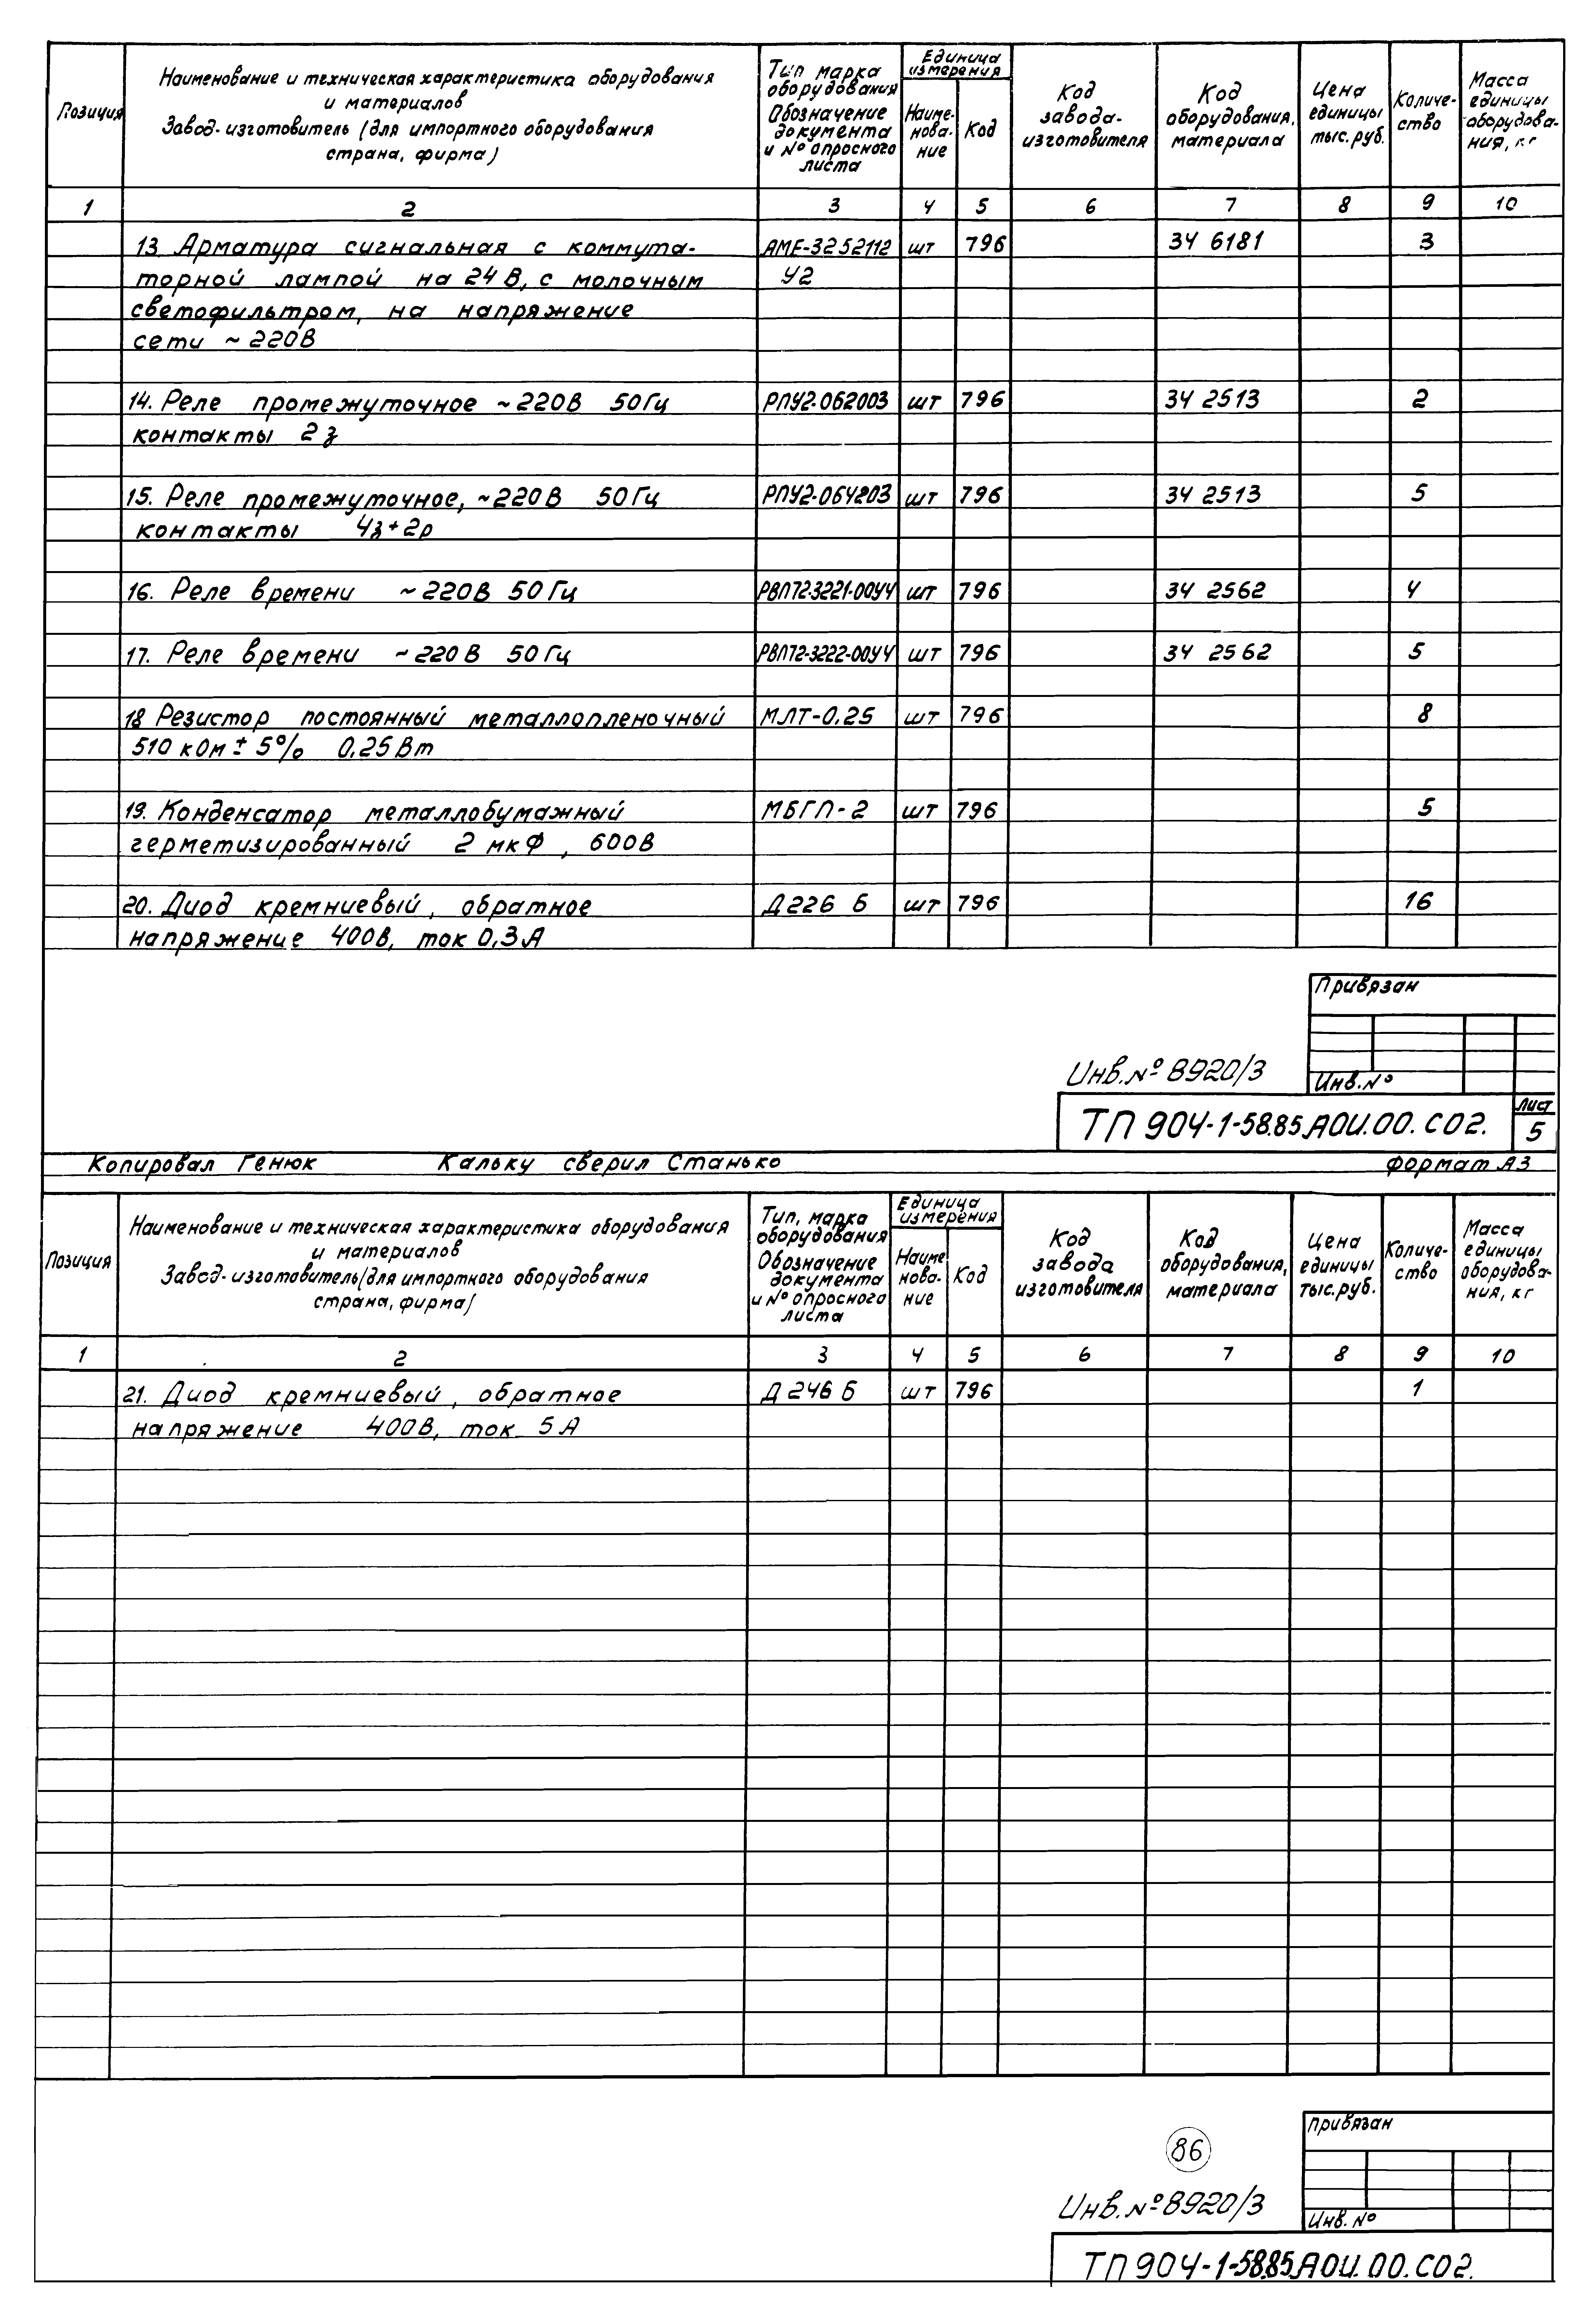 Позиция
Наименование и техническая характеристика оборудования
и материалов
Завод-изготовитель (для импортного оборудования
страна, фирма)
Тип марка
оборудования
Обозначение
документа
и № опросного
листа
Единица
измерения
Наиме-
нова-
ние
Код
Код
завода-
изготовителя
Код
оборудования,
материала
Цена
единицы
тыс. руб.
Количе-
ство
Масса
единицы
оборудова-
ния, кг
1 2 3 4 5 6 7 8 9 10
13. Арматура сигнальная с коммута- АМЕ-3252112 шт 796 34 6181 3
торной лампой на 24 В, с молочным У2
светофильтром, на напряжение
сети ~ 220В
14. Реле промежуточное ~220В 50Гц РПУ2-062003 шт 796 34 2513 2
контакты 2з
15. Реле промежуточное, ~220В 50Гц РПУ2-064203 шт 796 34 2513 5
контакты 4з+2р
16. Реле времени ~220В 50Гц РВП72-3221-00У4 шт 796 34 2562 4
17. Реле времени ~220В 50Гц РВП72-3222-00У4 шт 796 34 2562 5
18 Резистор постоянный металлопленочный МЛТ-0,25 шт 796 8
510 кОм ± 5% 0,25Вт
19. Конденсатор металлобумажный МБГП-2 шт 796 5
герметизированный 2 мкФ, 600В
20. Диод кремниевый, обратное Д226 Б шт 796 16
напряжение 400В, ток 0,3А
Привязан
Инв. № 8920/3
Инв. №
ТП 904-1-58.85.АОИ.00.СО2.
Лист
5
Копировал Генюк Кальку сверил Станько Формат А3
Позиция
Наименование и техническая характеристика оборудования
и материалов
Завод-изготовитель (для импортного оборудования
страна, фирма)
Тип, марка
оборудования
Обозначение
документа
и № опросного
листа
Единица
измерения
Наиме
нова-
ние
Код
Код
завода
изготовителя
Код
оборудования,
материала
Цена
единицы
тыс. руб.
Количе-
ство
Масса
единицы
оборудова-
ния, кг
1 2 3 4 5 6 7 8 9 10
21. Диод кремниевый, обратное Д246 Б шт 796 1
напряжение 400В, ток 5А
Привязан
86
Инв. № 8920/3
Инв. №
ТП 904-1-58.85.АОИ.00.СО2.